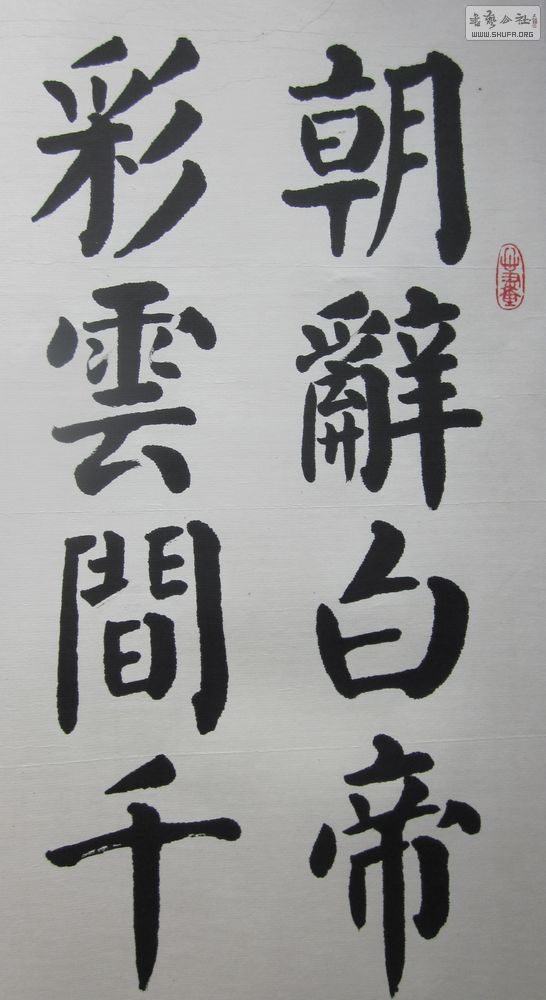 朝辭白帝
彩雲間千
書藝公社
WWW.SHUFA.ORG